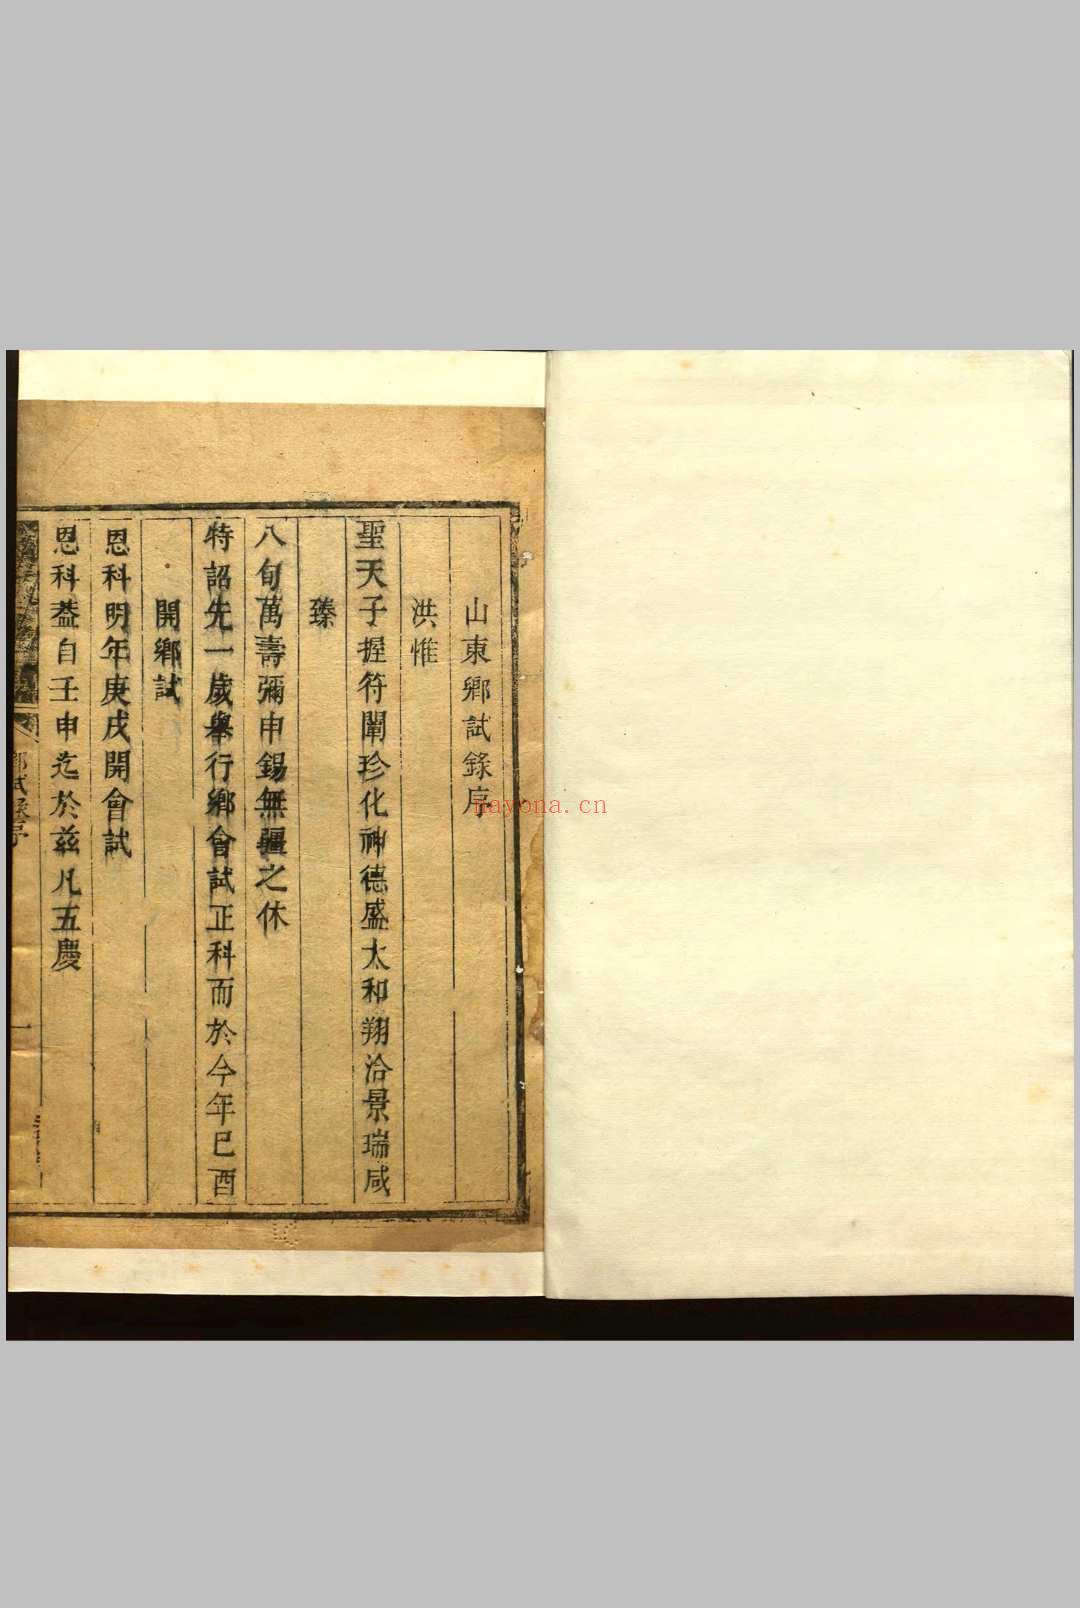 山東鄉試錄序
洪惟
聖天子握符闡珍化神德盛太和翔洽景瑞咸
臻
八旬萬壽彌申錫無疆之休
特詔先一歲舉行鄉會試正科而於今年己酉
開鄉試
恩科明年庚戌開會試
恩科葢自壬申迄於兹凡五慶
鄉試錄序
一
nayona.cn